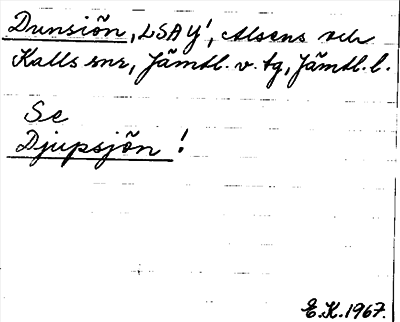 Dunsjön, 'LSAY', Alsens och
Kalls snr, Jämtl. v. tg, Jämtl. l.
Se
Djupsjön!
E.K. 1967.